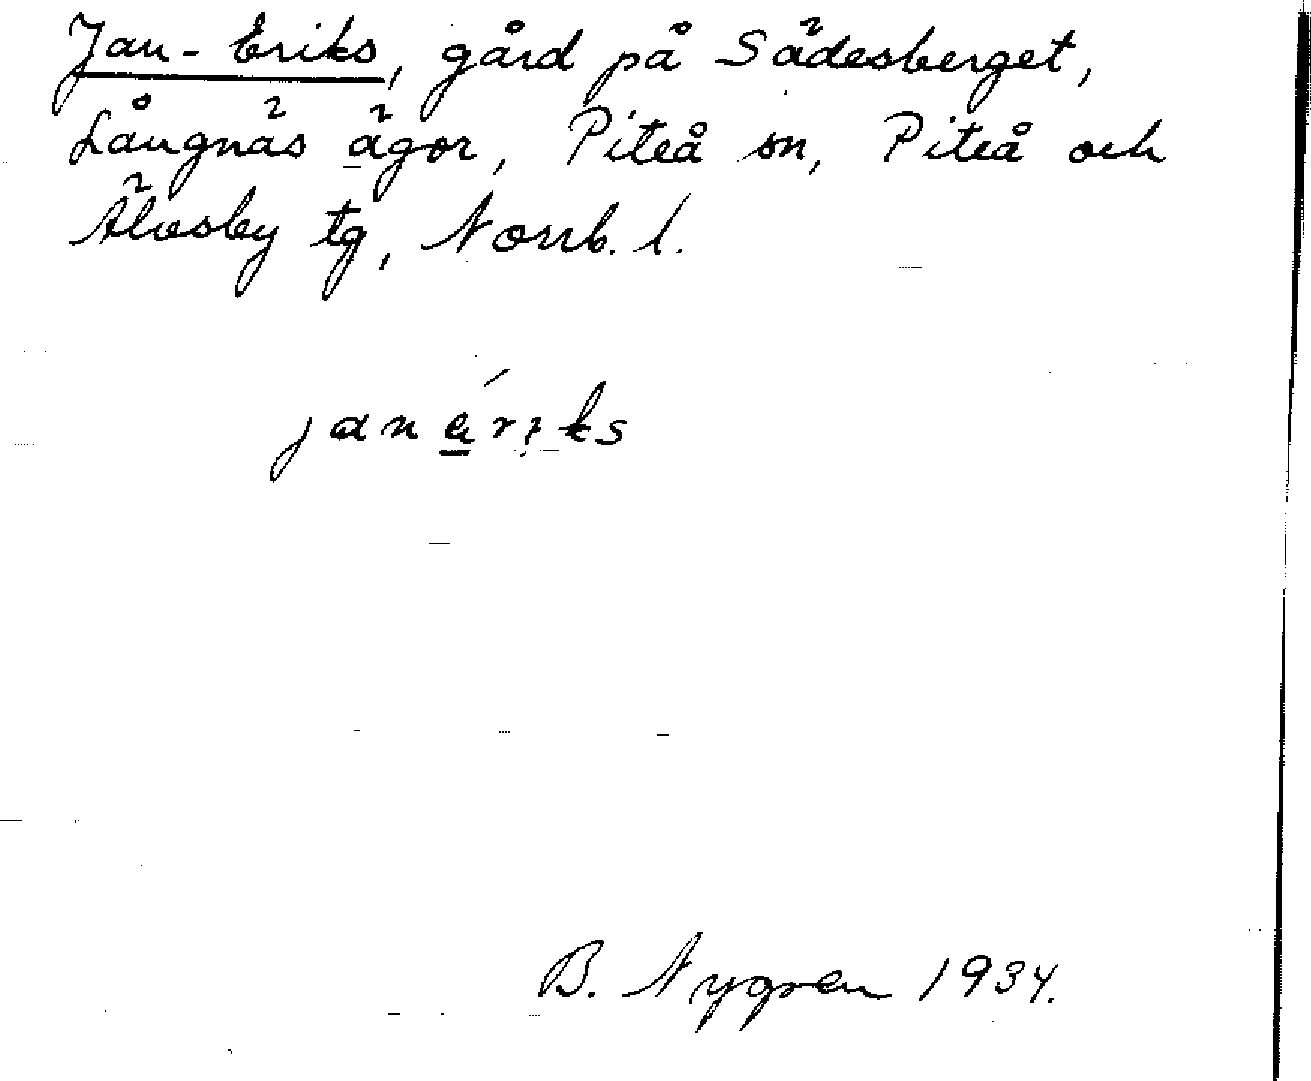 Jan-Eriks, gård på Sädesberget,
Långnäs ägor, Piteå sn, Piteå och
Älvsby tg, Norrb. l.
janériks
B. Nygren 1934.